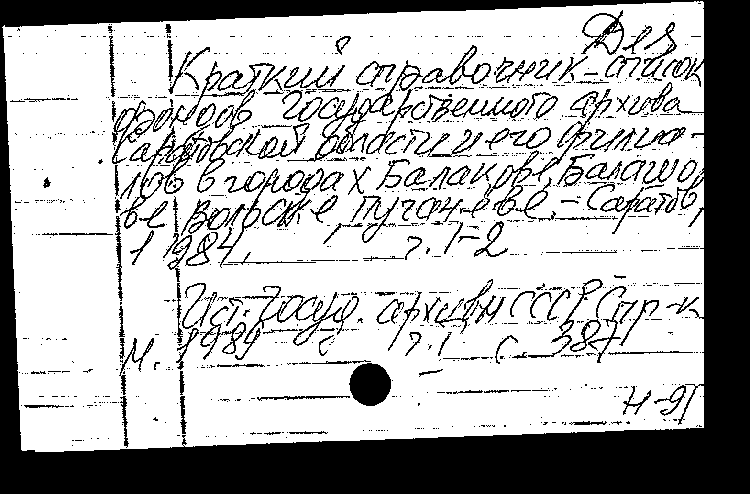 Дез
Краткий справочник-список
фондов Государственного архива
Саратовской области и его филиа-
лов в городах Балакове, Балашо,
ве Вольске, Пугачеве. - Саратов,
1984. ч. 1-2
Ист: Госуд. архивы СССР Спр-к
М. 1989 ч. 1 с. 387
Н-91